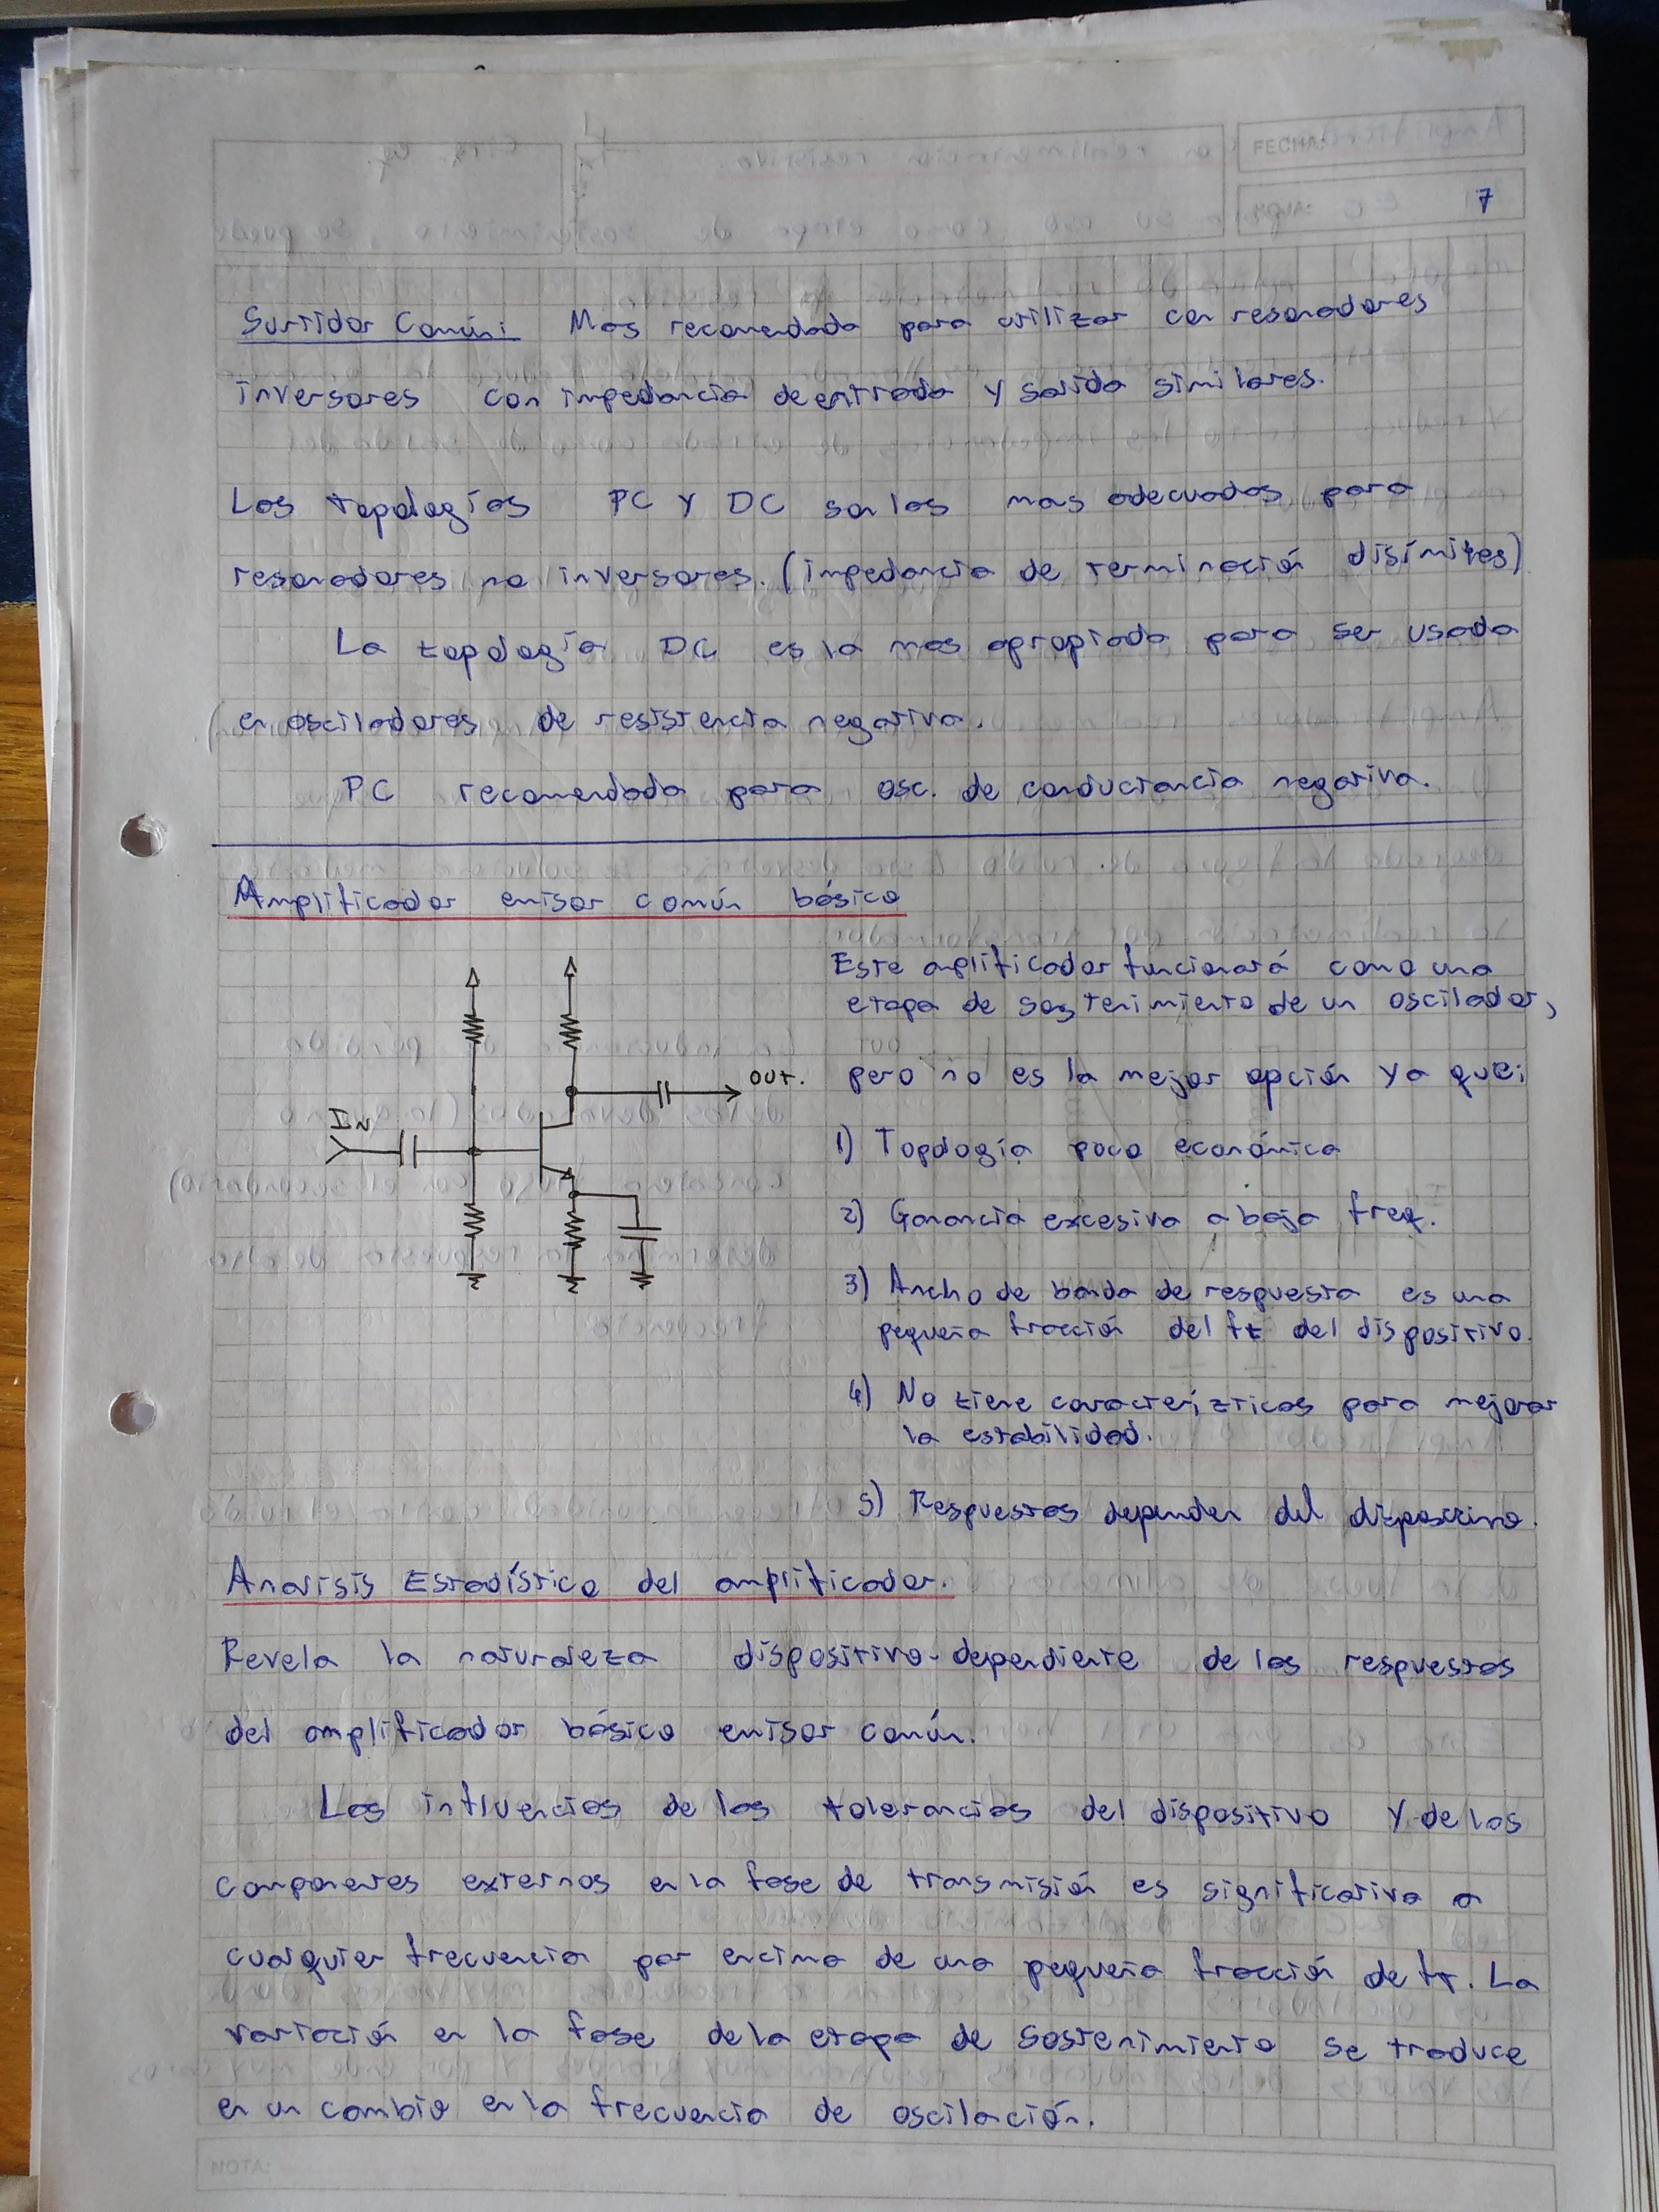 FECHA:
7
Surtidor Común: Mas recomendada para utilizar con resonadores
inversores con impedancia de entrada y salida similares.
Las topologías PC y DC son las mas adecuadas para
resonadores no inversores. (impedancia de terminación disímiles)
La topología DC es la mas apropiada para ser usada
en osciladores de resistencia negativa.
PC recomendada para osc. de conductancia negativa.
Amplificador emisor común básico
Este amplificador funcionará como una
etapa de sostenimiento de un oscilador,
pero no es la mejor opción ya que:
OUT.
IN
1) Topología poco económica
2) Ganancia excesiva a baja freq.
3) Ancho de banda de respuesta es una
pequeña fracción del ft del dispositivo.
4) No tiene caracterízticas para mejorar
la estabilidad.
5) Respuestas dependen del dispositivo.
Analisis Estadístico del amplificador.
Revela la naturaleza dispositivo-dependiente de las respuestas
del amplificador básico emisor común.
Las influencias de las tolerancias del dispositivo y de los
componentes externos en la fase de transmisión es significativa a
cualquier frecuencia por encima de una pequeña fracción de fT. La
variación en la fase de la etapa de sostenimiento se traduce
en un cambio en la frecuencia de oscilación.